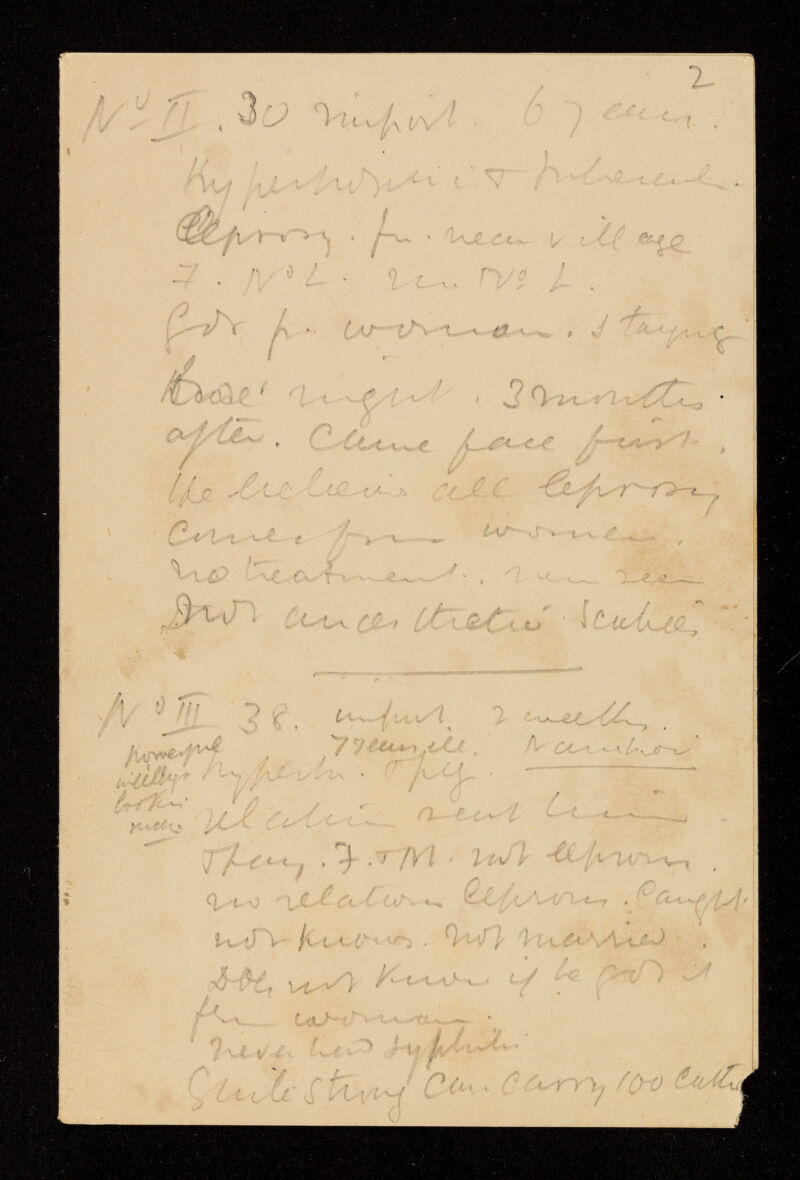 2
No II. 30 6 years.
Hypertrophic & Tubercular
Leprosy. fr. near village
F. No L. No L.
Got fr. woman. staying
night. 3 months
after. Came face first.
He believes all leprosy
comes from women.
no treatment. seen
Not anaesthetic Scabies
No III 38. 2 weeks.
7 years ill. Namhoi
powerful
looking
man
Hypertr.
relation sent him
F. & M. not leprous.
no relations leprous. Caught
not knows. Not married.
Does not know if he got it
from woman.
never had syphilis
Quite strong Can carry 100 Catties